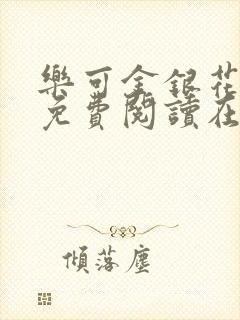 樂可金銀花
免費閱讀在
傾落塵